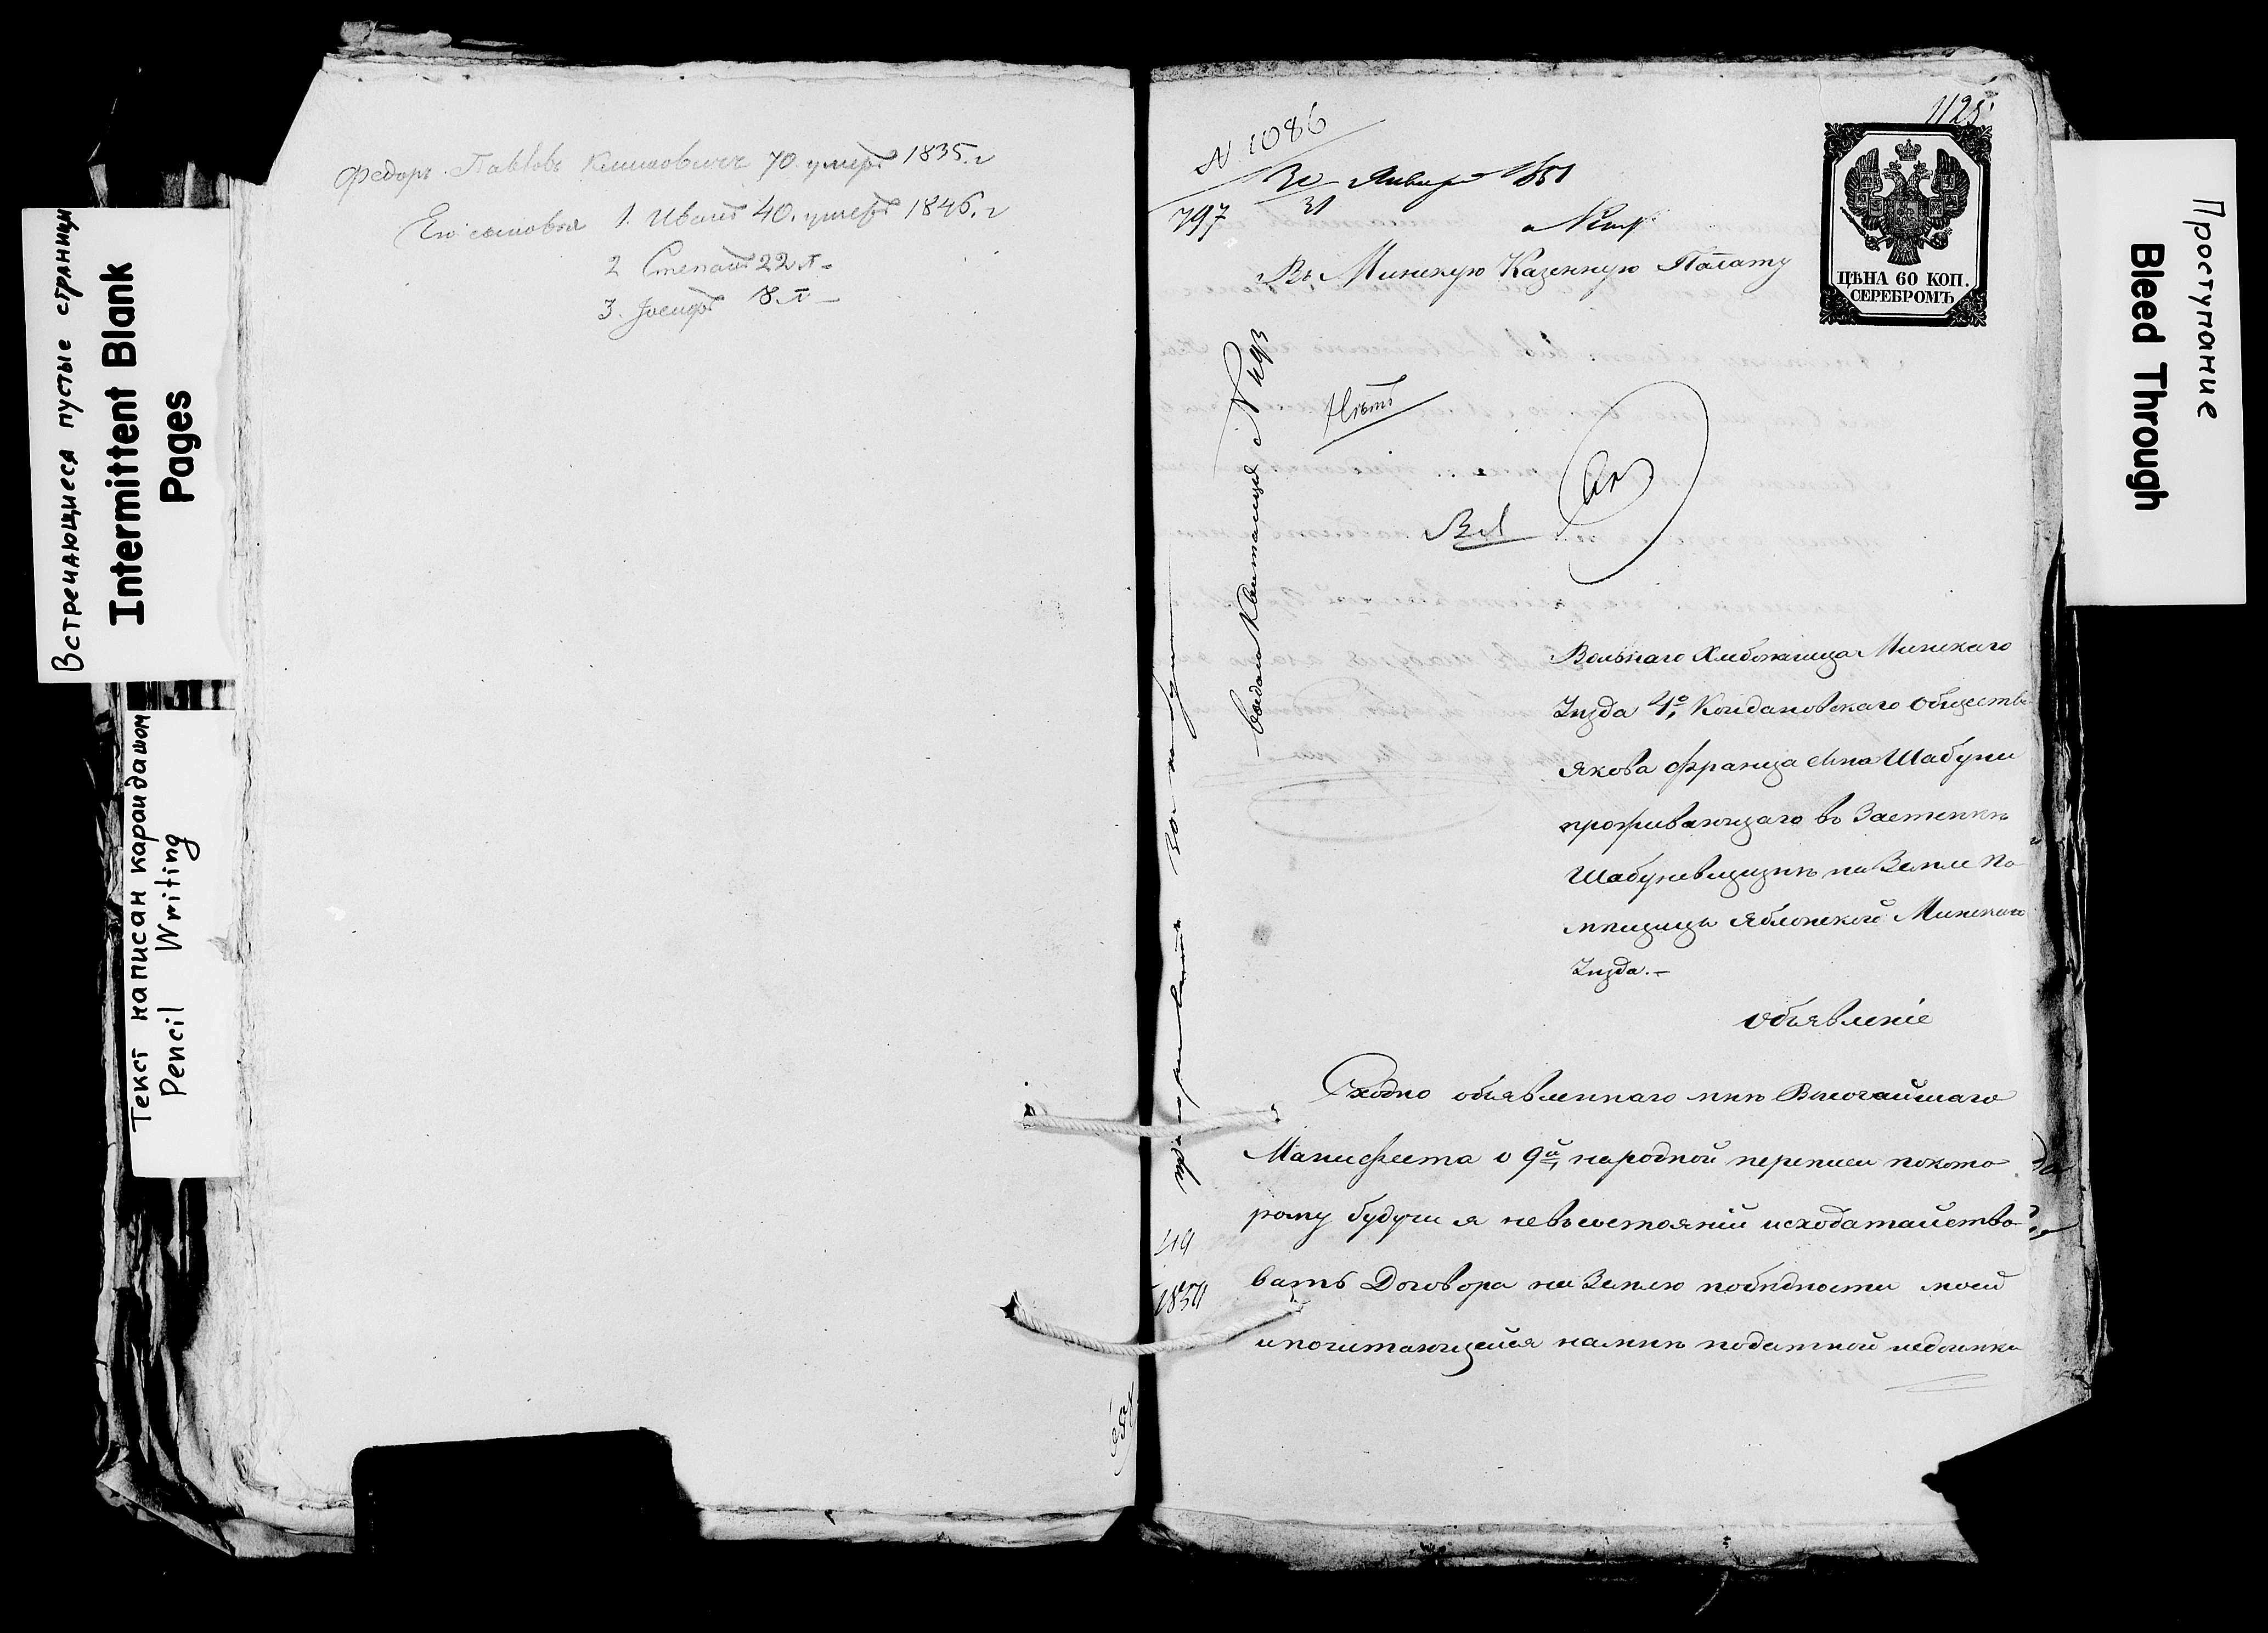 Встречающиеся пустые страницы
Intermittent Blank
Pages
Текст написан карандашом
Pencil Writing
Федоръ Павловъ Климовичъ 70. умеръ 1835. г
Его сыновья 1. Иванъ 40. умеръ 1846. г
2 Степанъ 22 л –
3. Іосифъ 8. л –
1125
N 1086
30 Января 1851
31
797
Въ Минскую Казенную Палату
ЦѢНА 60 КОП.
СЕРЕБРОМЪ
Выдана Квитанція N
Вольнаго Хлебопашца Минскаго
Уезда 4го Койдановскаго Общества
Якова Франца Шабуни
проживающаго въ Застенкѣ
Шабуневщизнѣ на Земле По-
мѣщицы Яблонской Минскаго
Уезда. –
Объявленіе
Сходно объявленнаго мнѣ Высочайшаго
Манифеста о 9й народной переписи покото-
рому будучи я невъсостояніи исходатайство-
вать Договора на Землю побѣдности моей
ипочитающейся намнѣ податной недоимки
1850
Проступание
Bleed Through